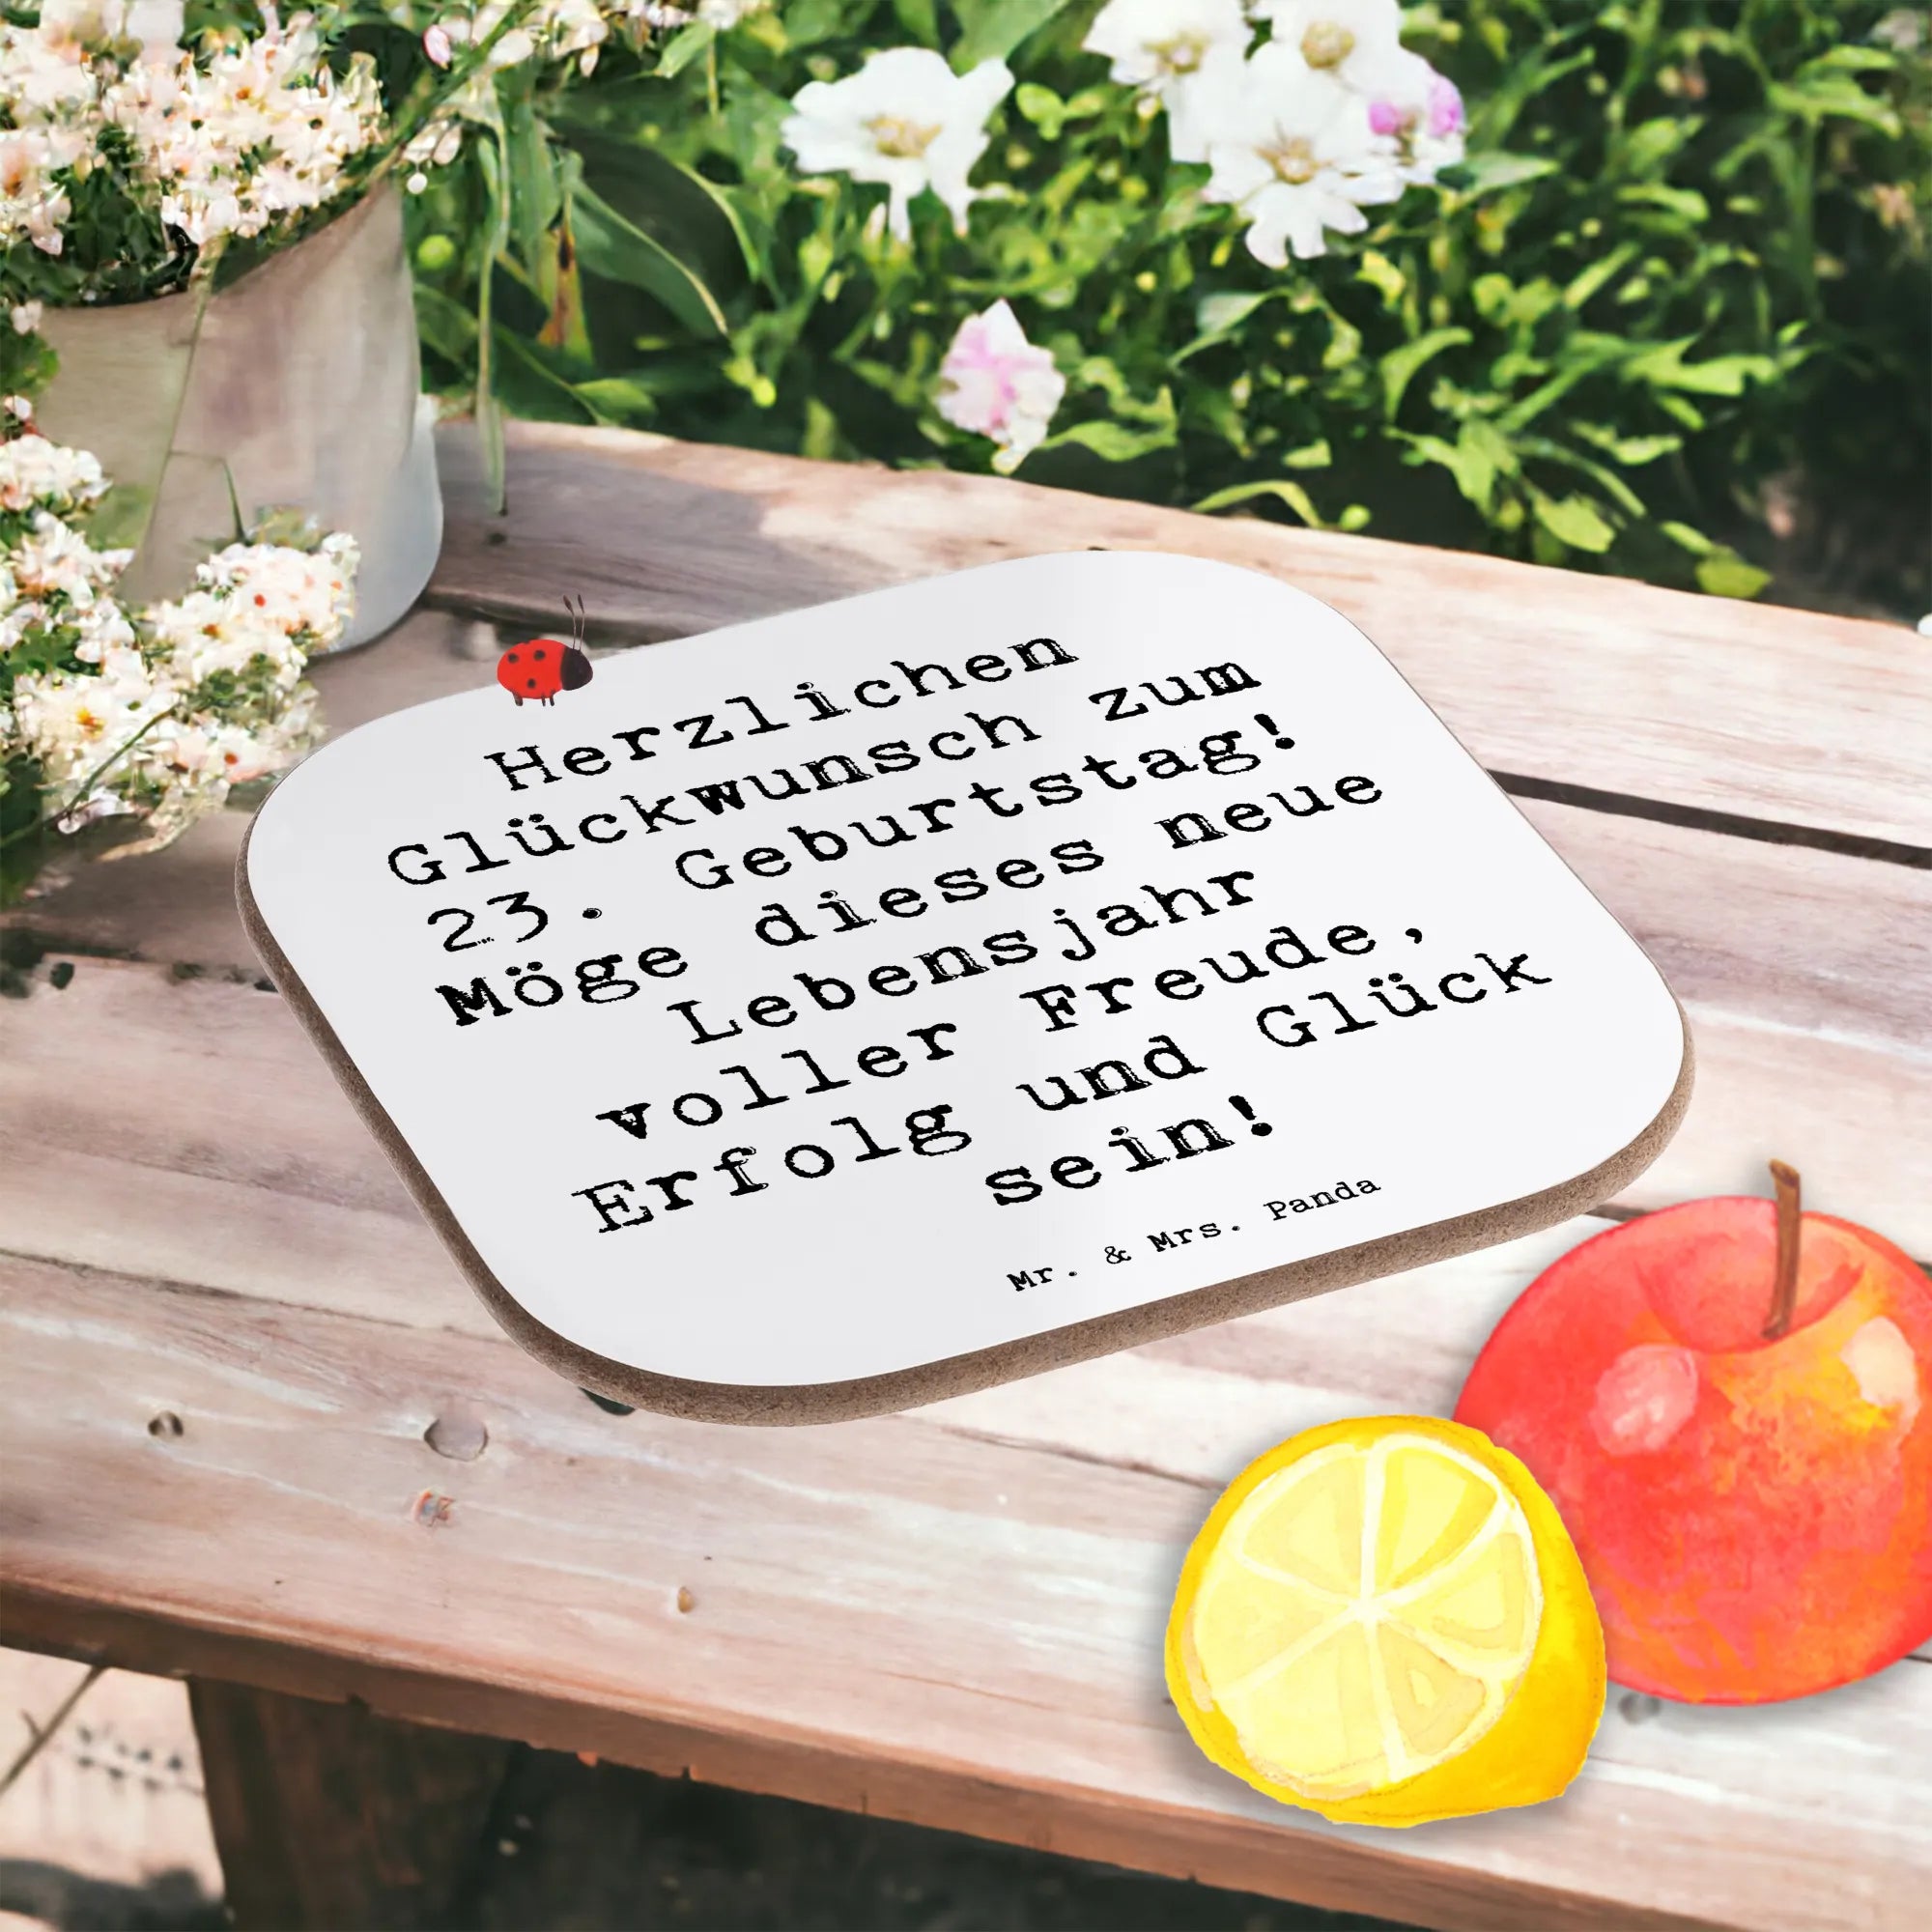 Herzlichen
Glückwunsch zum
23. Geburtstag!
Möge dieses neue
Lebensjahr
voller Freude,
Erfolg und Glück
sein!
Mr. & Mrs. Panda